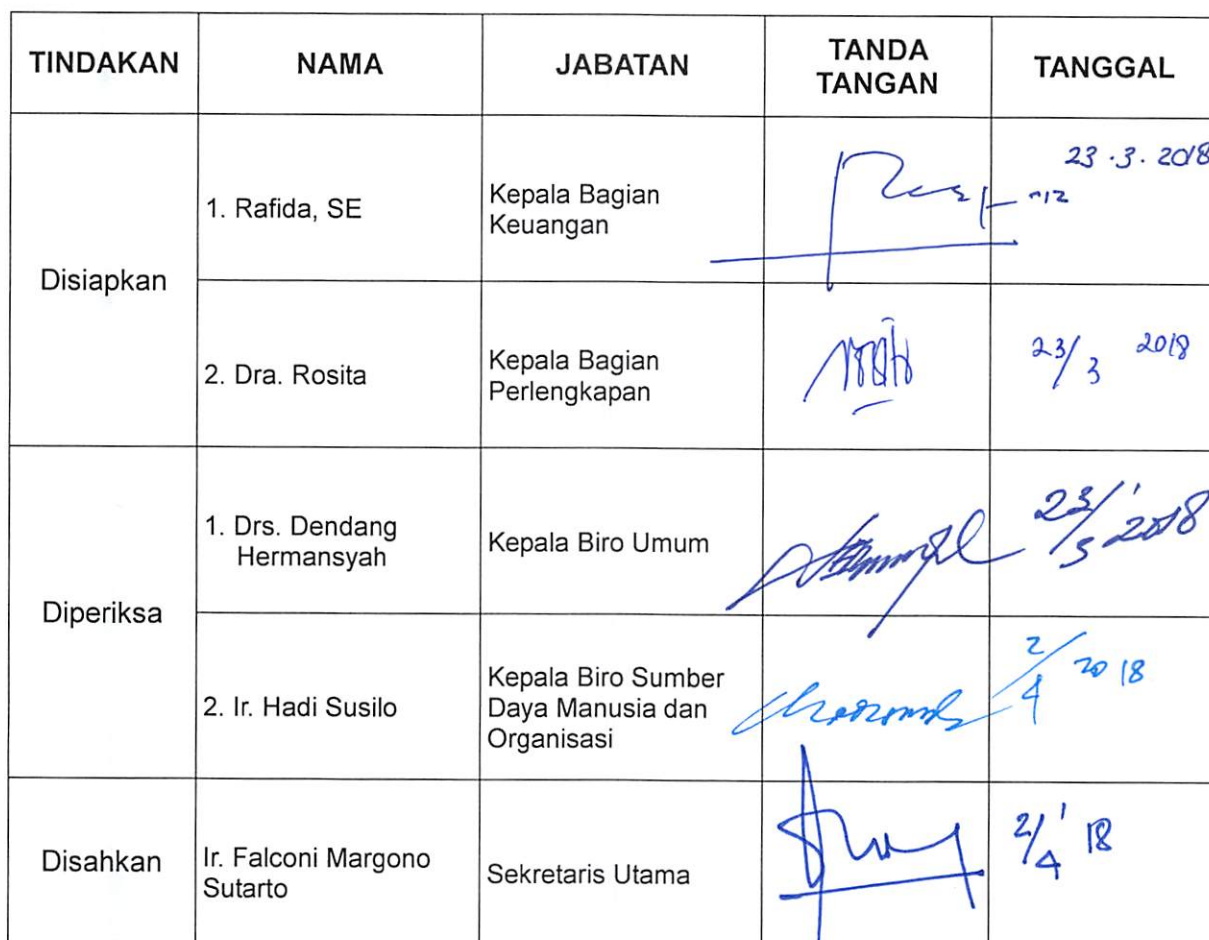 TINDAKAN NAMA JABATAN TANDA TANGAN TANGGAL
Disiapkan
1. Rafida, SE
Kepala Bagian
Keuangan
23.3.2018
2. Dra. Rosita
Kepala Bagian
Perlengkapan
23/3 2018
Diperiksa
1. Drs. Dendang
Hermansyah
Kepala Biro Umum
23/3 2018
2. Ir. Hadi Susilo
Kepala Biro Sumber
Daya Manusia dan
Organisasi
2/4 2018
Disahkan
Ir. Falconi Margono
Sutarto
Sekretaris Utama
2/4 '18